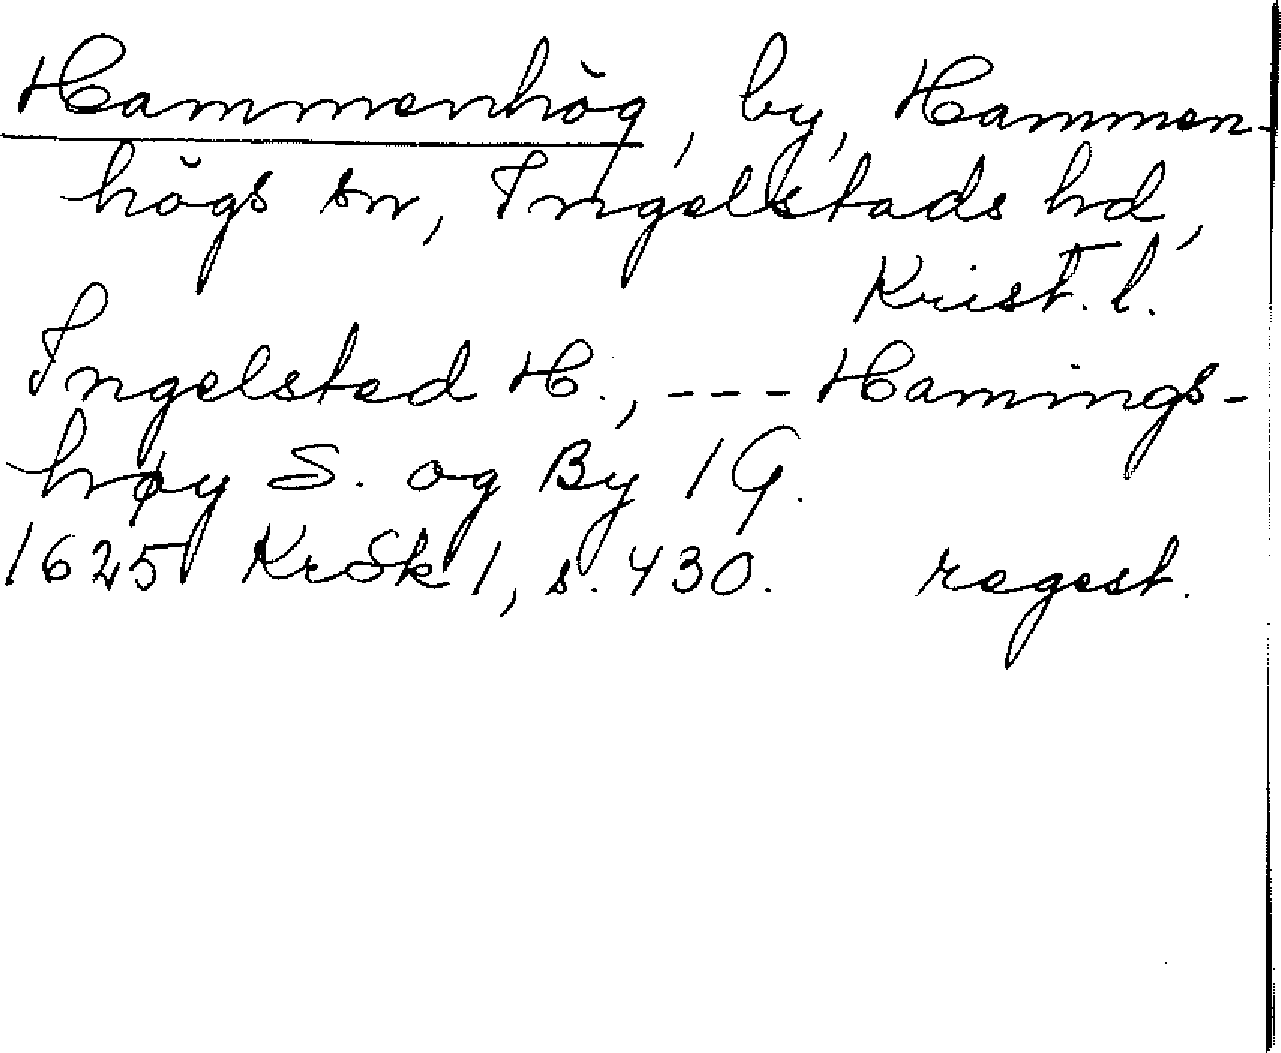 Hammenhög, by, Hammen-
högs sn, Ingelstads hd,
Krist. l.
Ingelsted H., --- Hamings-
høy S. og By 1 G.
1625 KrSk 1, s. 430. regest.